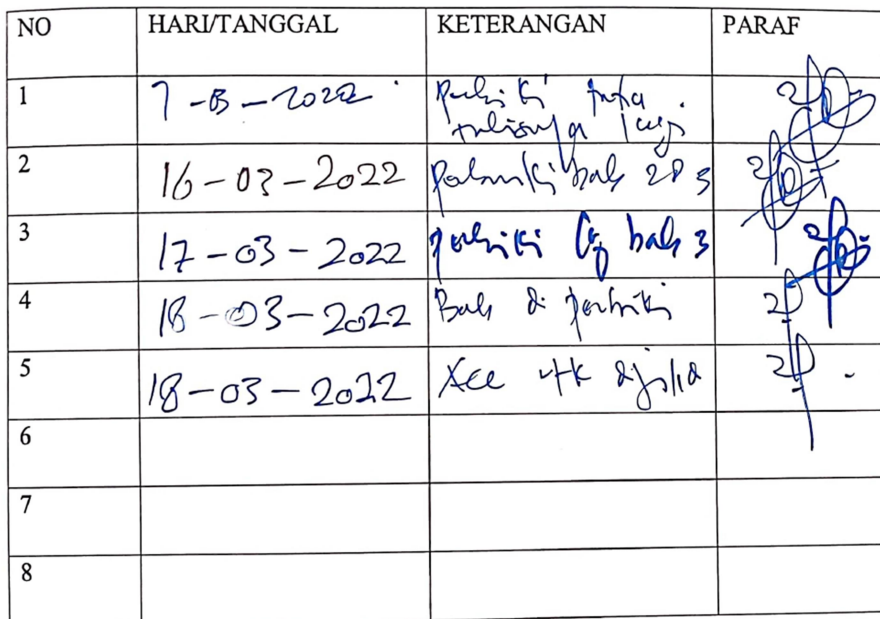 NO HARI/TANGGAL KETERANGAN PARAF
1 7-03-2022 tulisnya lagi
2 16-03-2022 bab 2 & 3
3 17-03-2022 perbaiki lg bab 3
4 18-03-2022 Bab di perbaiki
5 18-03-2022 Acc utk dijilid
6
7
8